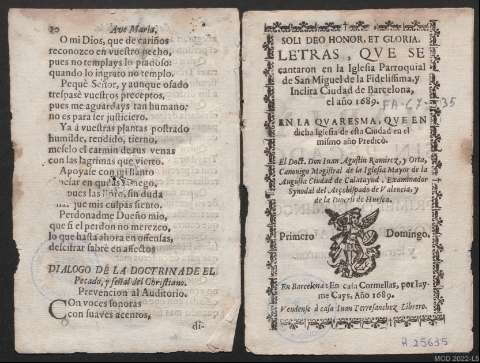 20 Ave Maria,
O mi Dios, que de cariños
reconozco en vuestro pecho,
pues no templays lo piadoso:
quando lo ingrato no templo.
Pequè Señor, y aunque osado
trespasè vuestros preceptos,
pues me aguardays tan humano,
no es para ser justiciero.
Ya á vuestras plantas postrado
humilde, rendido, tierno,
mesclo el carmin de tus venas
con las lagrimas que vierto.
Apoyase con mi llanto
pesar en que as anego,
pues las lloro, sin duda
que mis culpas siento.
Perdonadme Dueño mio,
que si el perdon no merezco,
lo que hasta ahora en ofensas,
descifrar sabrè en afectos
DIALOGO DE LA DOCTRINA DE EL
Pecado, y señal del Christiano.
Prevencion al Auditorio.
Con voces sonoras
con suaves acentos,
di-
SOLI DEO HONOR, ET GLORIA.
LETRAS, QVE SE
cantaron en la Iglesia Parroquial
de San Miguel de la Fidelissima, y
Inclita Ciudad de Barcelona,
el año 1689.
EN LA QVARESMA, QUE EN
dicha Iglesia de esta Ciudad en el
mismo año Predicò.
El Doct. Don Iuan Agustin Ramirez, y Orta,
Canonigo Magistral de la Iglesia Mayor de la
Augusta Ciudad de Calatayud, Examinador
Synodal del Arçobispado de Valencia, y
de la Diocesi de Huesca.
Primero Domingo.
En Barcelona: En casa Cormellas, por Iay-
me Cays. Año 1689.
Vendense à casa Iuan Terresanchez Librero.
A 25635
MCD 2022-L5